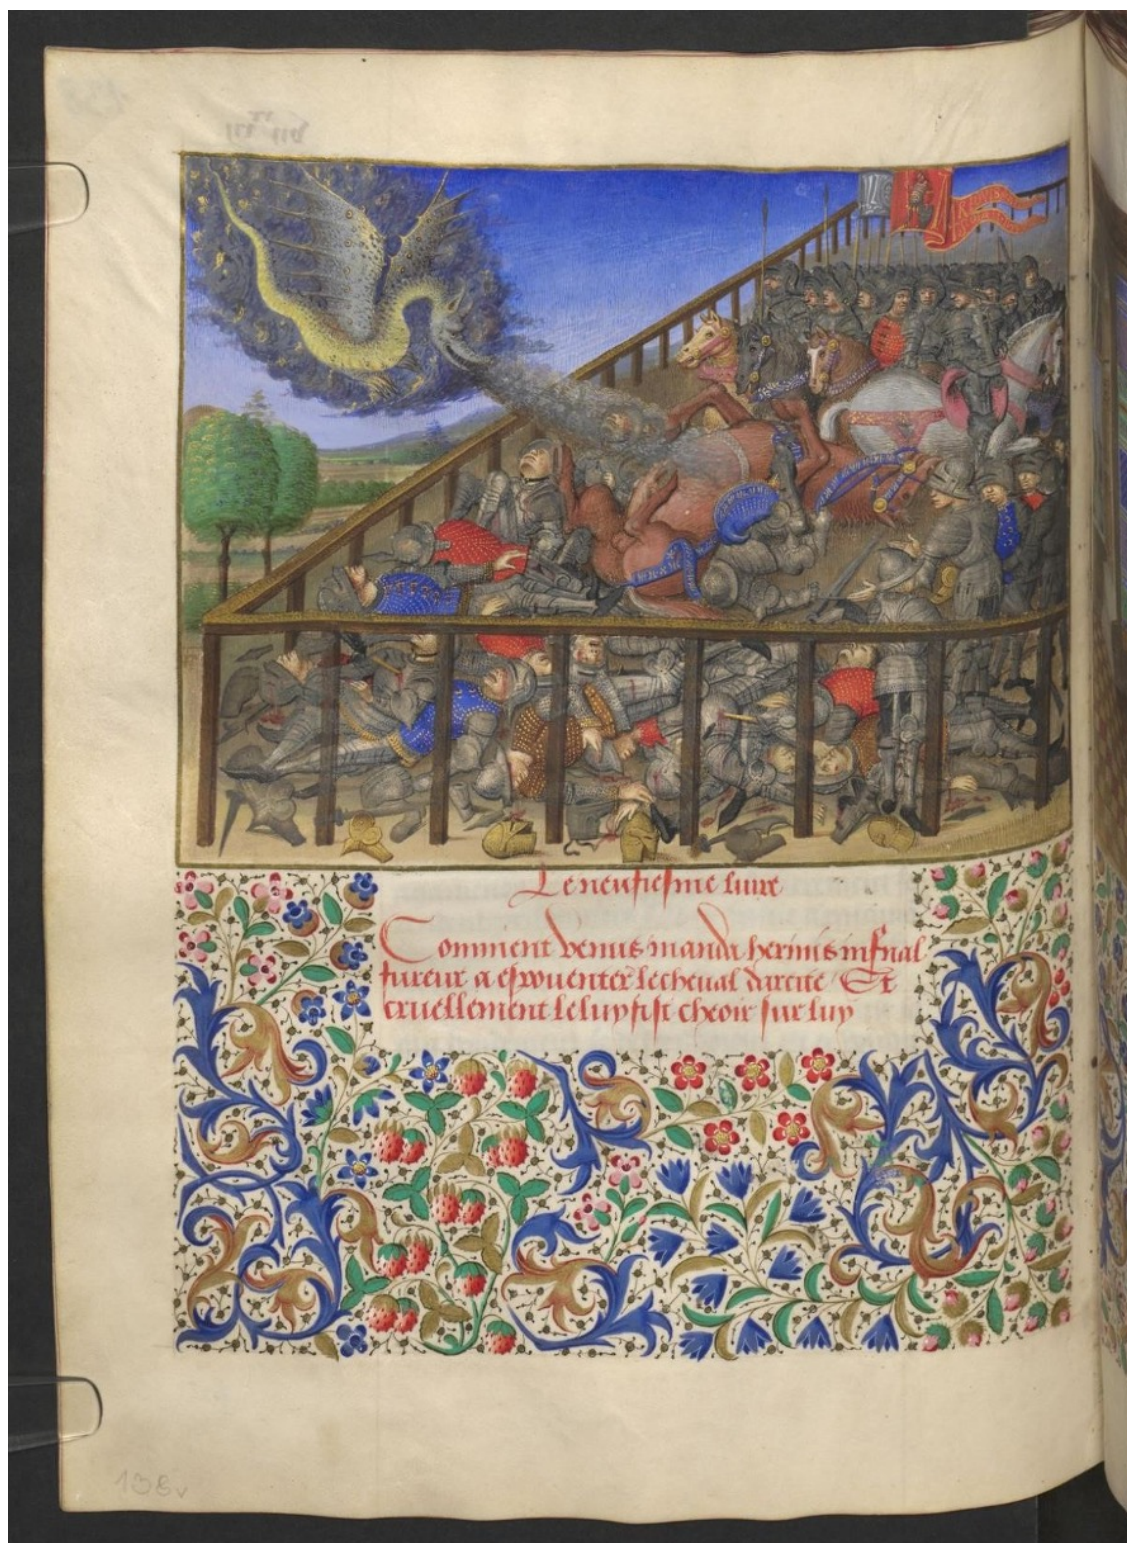 Le neufiesme livre
Comment Venus manda herinis infernal
fureur a espouenter le cheval darcite Et
cruellement le luy fist cheoir sur luy
138v